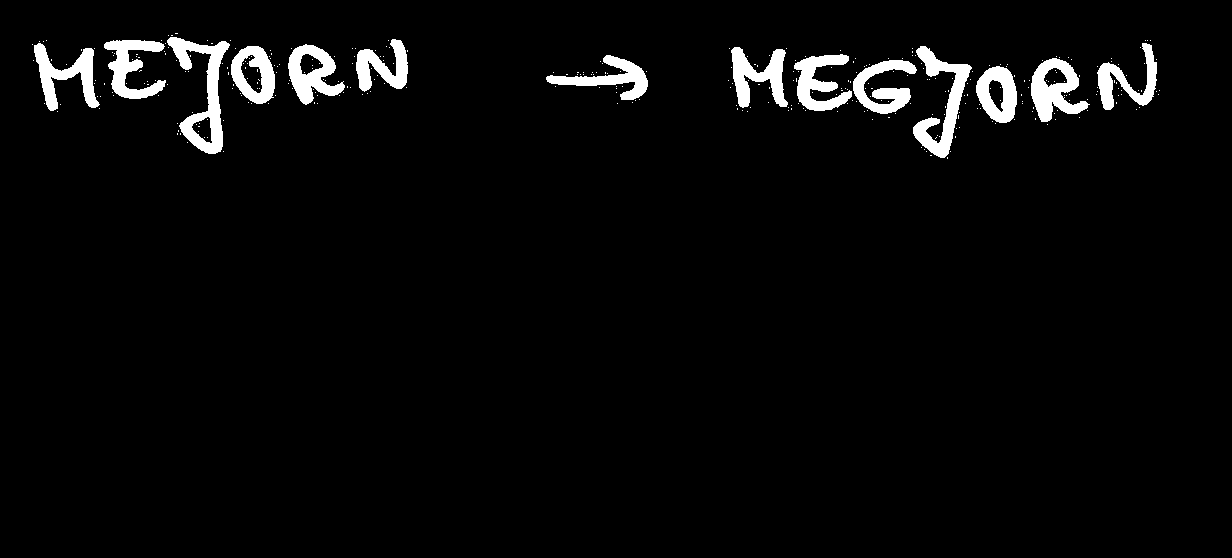 MEJORN → MEGJORN